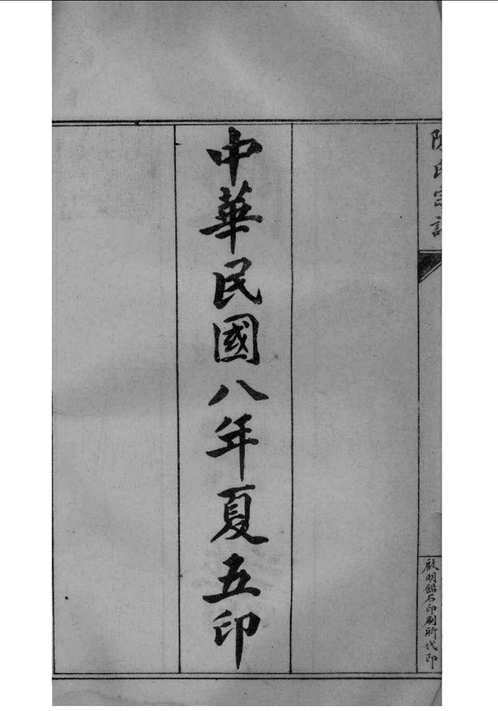 陳氏宗譜
中華民國八年夏五印
啟明鑄石印刷所代印